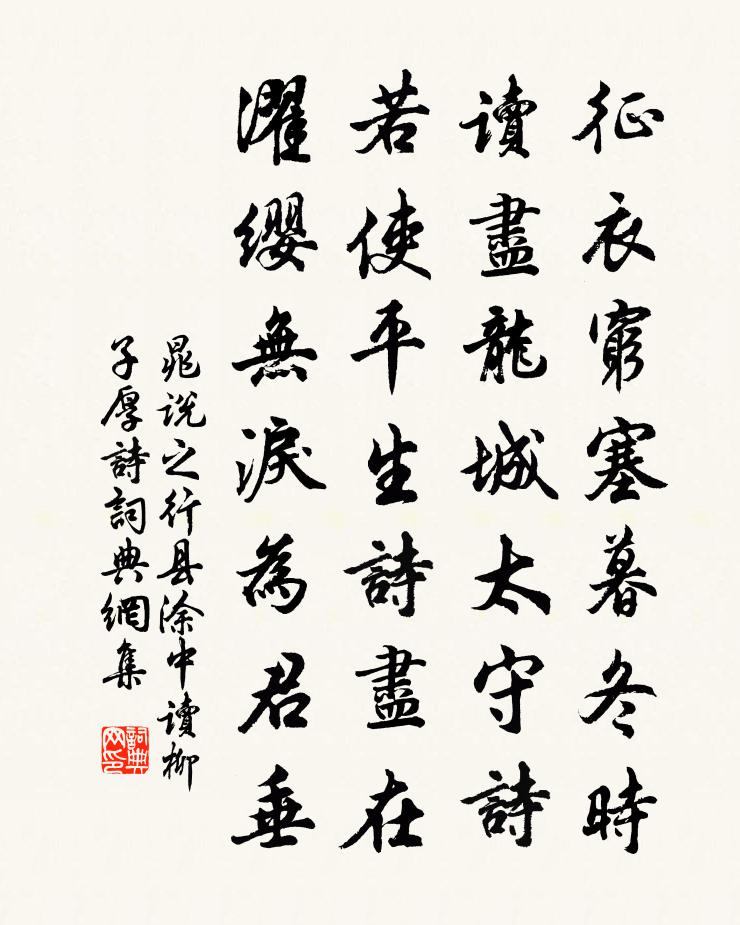 征衣窮塞暮冬時
讀盡龍城太守詩
若使平生詩盡在
濯纓無淚為君垂
晁说之行县涂中讀柳
子厚詩詞典網集
詞典
网印